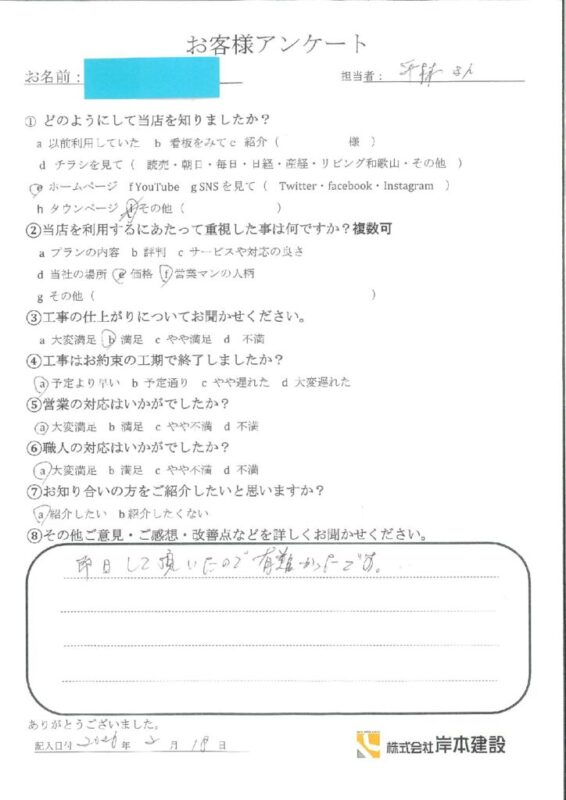 お客様アンケート
お名前：
担当者： 平林 さん
① どのようにして当店を知りましたか？
a 以前利用していた b 看板をみて c 紹介（ 様 ）
d チラシを見て（ 読売・朝日・毎日・日経・産経・リビング和歌山・その他 ）
e ホームページ f YouTube g SNSを見て（ Twitter・facebook・Instagram ）
h タウンページ i その他（ ）
②当店を利用するにあたって重視した事は何ですか？複数可
a プランの内容 b 評判 c サービスや対応の良さ
d 当社の場所 e 価格 f 営業マンの人柄
g その他（ ）
③工事の仕上がりについてお聞かせください。
a 大変満足 b 満足 c やや満足 d 不満
④工事はお約束の工期で終了しましたか？
a 予定より早い b 予定通り c やや遅れた d 大変遅れた
⑤営業の対応はいかがでしたか？
a 大変満足 b 満足 c やや不満 d 不満
⑥職人の対応はいかがでしたか？
a 大変満足 b 満足 c やや不満 d 不満
⑦お知り合いの方をご紹介したいと思いますか？
a 紹介したい b 紹介したくない
⑧その他ご意見・ご感想・改善点などを詳しくお聞かせください。
即日して頂いたので有難かったです。
ありがとうございました。
記入日付 2026年 2月 18日
株式会社岸本建設